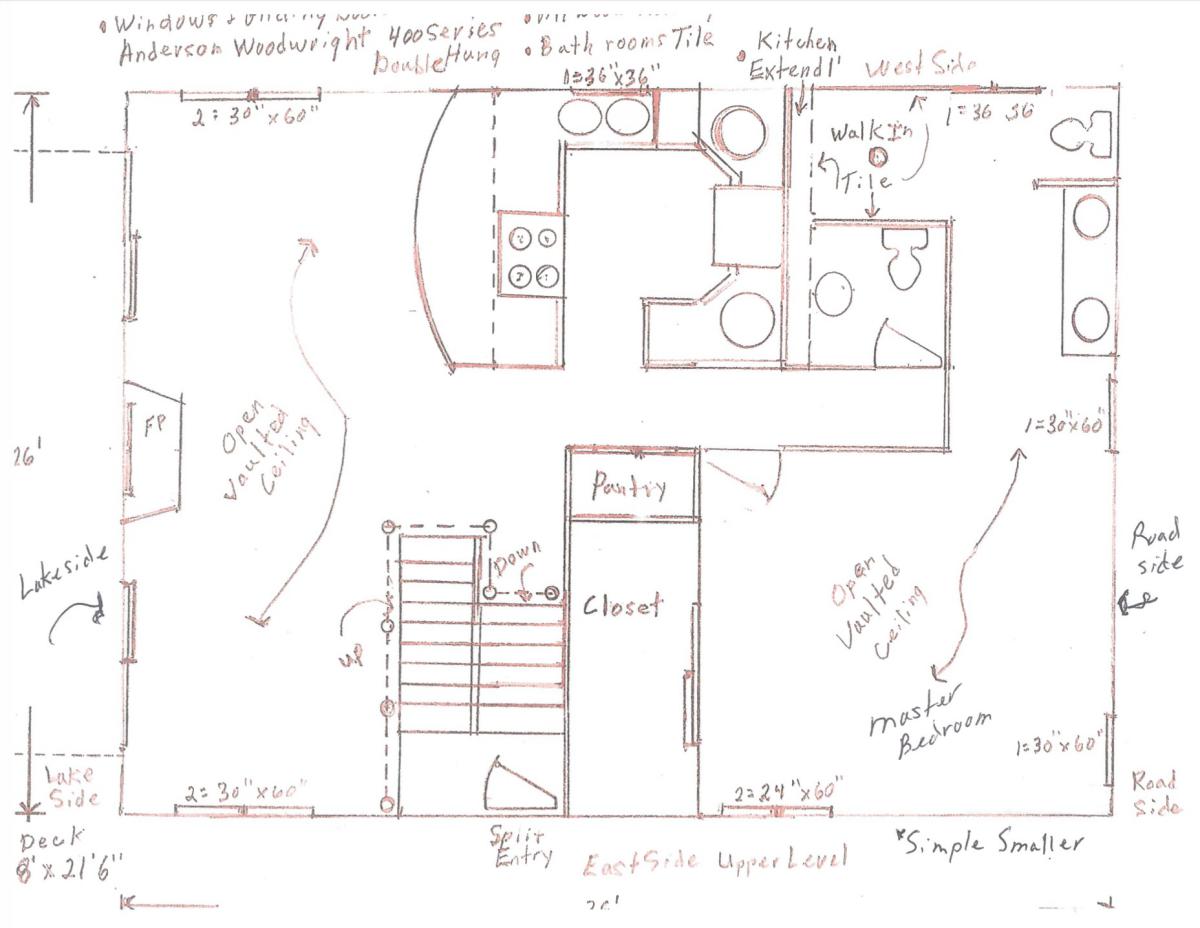 • Windows +
Anderson Woodwright 400 Series
Double Hung
• Bath rooms Tile
• Kitchen
Extend 1'
West Side
1=36"x36"
2=30"x60"
1=36 36
Walk In
Tile
FP
26'
Open
Vaulted
Ceiling
1=30"x60"
Pantry
Lakeside
Down
Closet
Up
Open
Vaulted
Ceiling
Road
side
Master
Bedroom
1=30"x60"
Lake
Side
2=30"x60"
2=24"x60"
Road
Side
Deck
8'x21'6"
Split
Entry
East Side Upper Level
*Simple Smaller